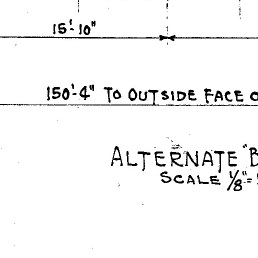 15'-10"
150'-4" TO OUTSIDE FACE
ALTERNATE "B
SCALE 1/8"=